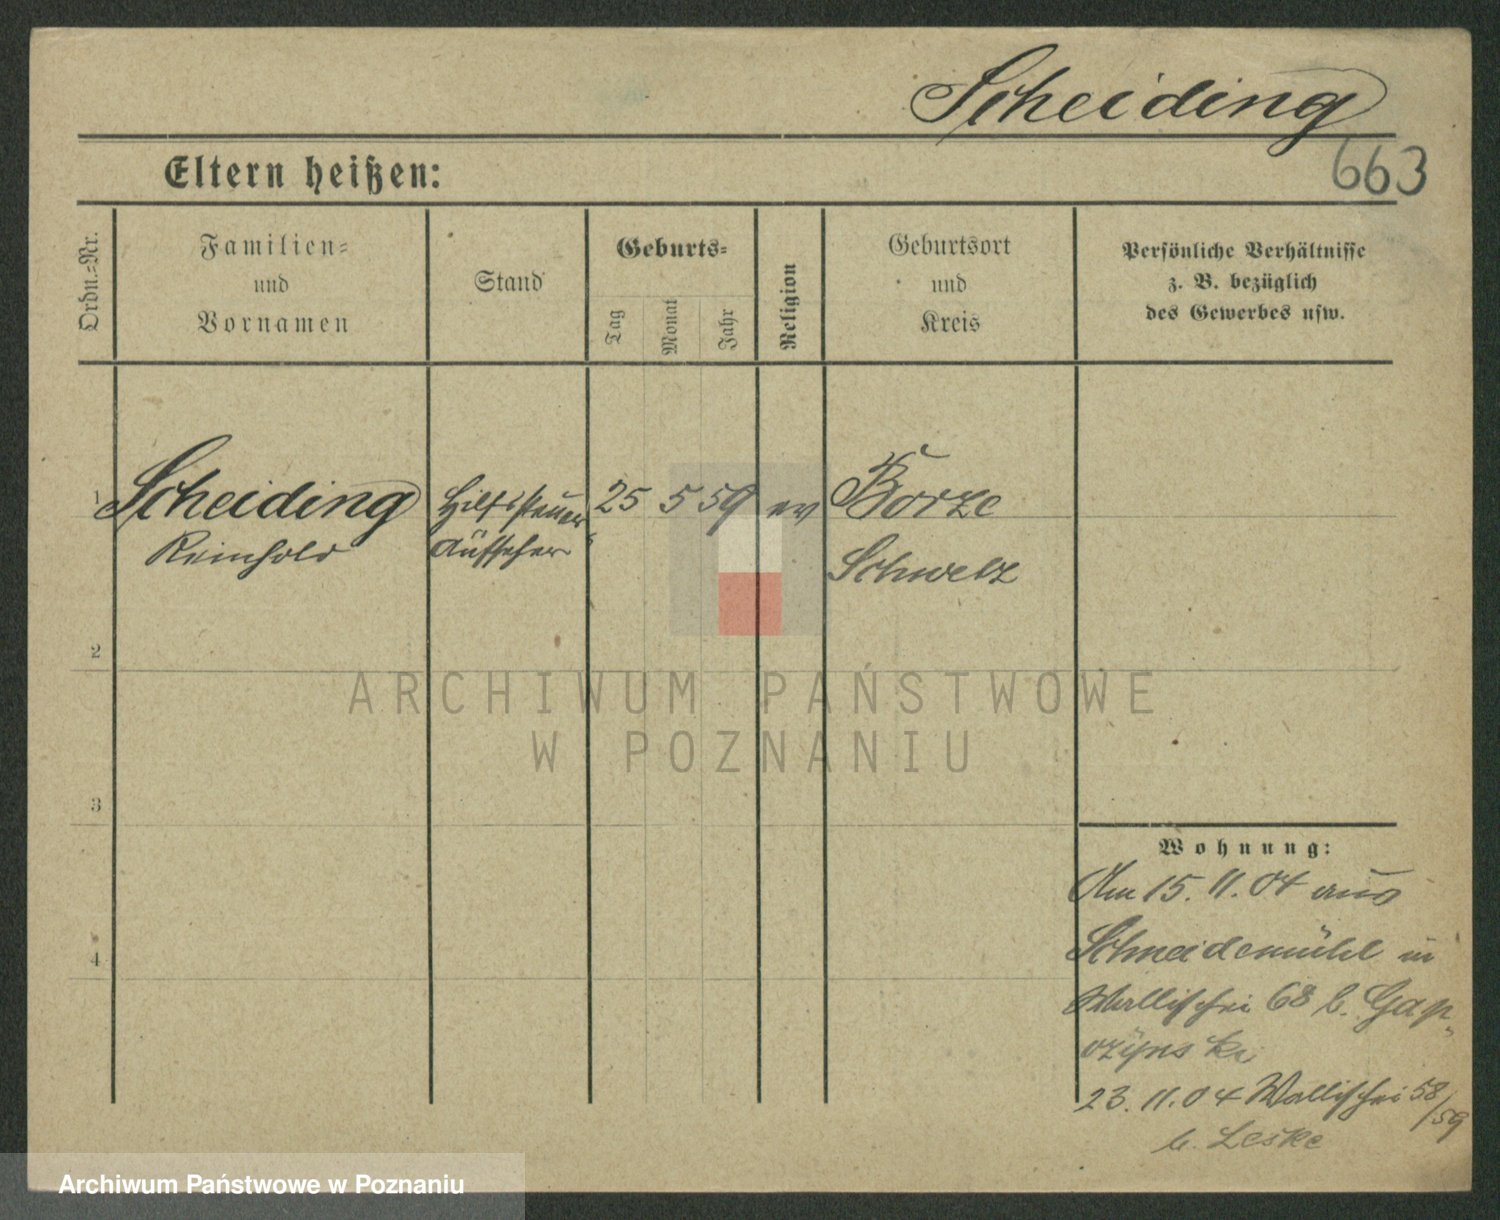 Scheiding
663
Eltern heißen:
Ordn.=Nr.
Familien=
und
Vornamen
Stand
Geburts=
Tag
Monat
Jahr
Religion
Geburtsort
und
Kreis
Persönliche Verhältnisse
z. B. bezüglich
des Gewerbes usw.
1 Scheiding Hilfssteuer 25 5 59 ev Borze
Reinhold Aufseher Schwetz
2
3
4
Wohnung:
Am 15.11.04 aus
Schneidemühl in
Wallischei 68 b.
23.11.04 Wallischei 58/59
b. Leske
ARCHIWUM PAŃSTWOWE
W POZNANIU
Archiwum Państwowe w Poznaniu